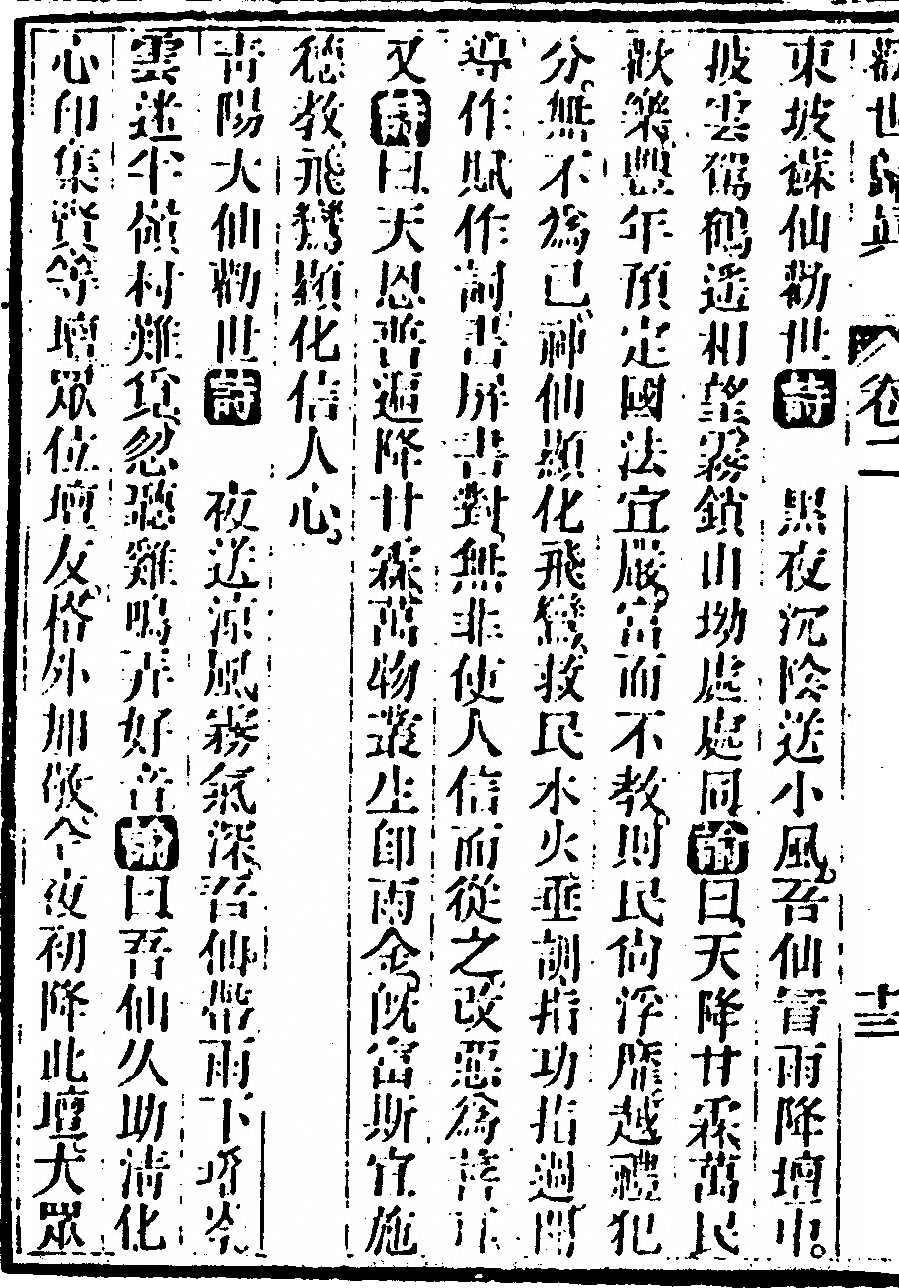 勸世歸真 卷二 十三
東坡蘇仙勸世詩 黑夜沉陰送小風吾仙冒雨降壇中。
披雲駕鶴遙相望霧鎖山坳處處同諭曰天降甘霖萬民
歡樂豐年預定國法宜嚴富而不教則民尚浮靡越禮犯
分。無不為已神仙顯化飛鸞救民水火垂訓指功指過開
導作賦作詞書屏書對無非使人信而從之改惡為善耳
又詩曰天恩普遍降甘霖萬物叢生即雨金既富斯宜施
德教飛鸞顯化信人心。
青陽大仙勸世詩 夜送涼風霧氣深吾仙帶雨下塔岑
雲迷半嶺村難覓忽聽雞鳴弄好音諭曰吾仙久助清化
心印集賢等壇眾位壇友格外加敬今夜初降此壇大眾